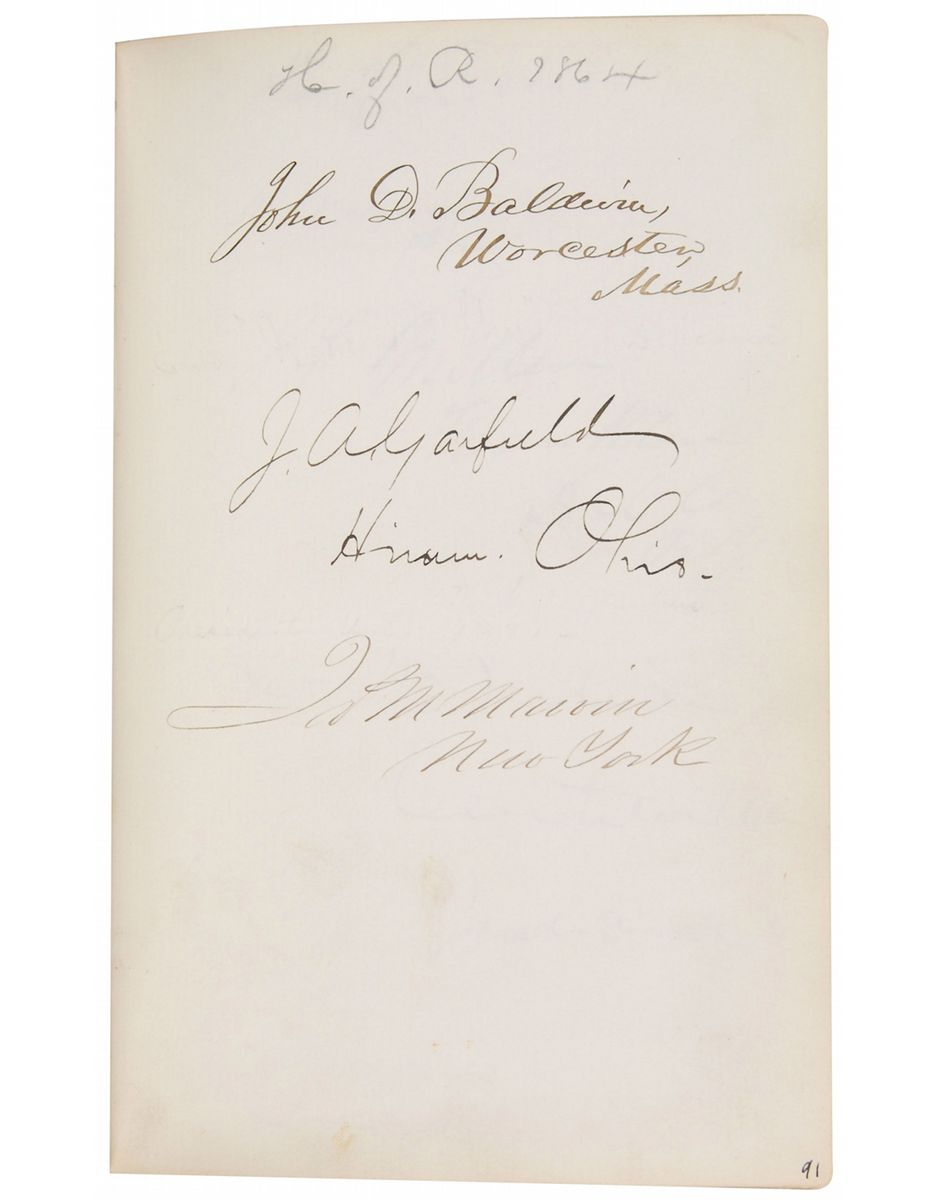 H. of R. 1864
John D. Baldwin,
Worcester,
Mass.
J. A. Garfield
Hiram. Ohio.
Jas M Marvin
New York
91